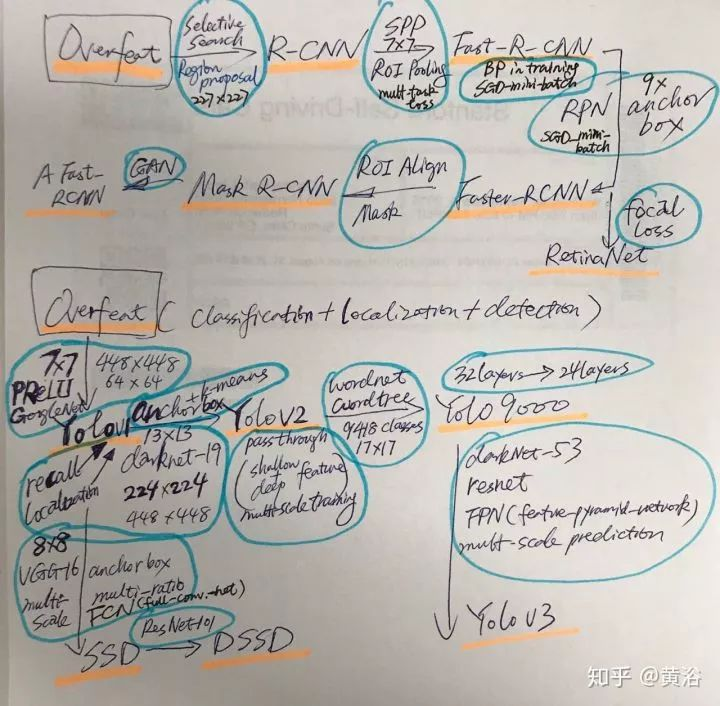 Overfeat
Selective
Search
Region
proposal
227×227
R-CNN
SPP
7×7
ROI Pooling
multi-task
loss
Fast-R-CNN
BP in training
SGD-mini-batch
RPN
SGD_mini-
batch
9×
anchor
box
A Fast-
RCNN
GAN
Mask R-CNN
ROI Align
Mask
Faster-RCNN
focal
loss
RetinaNet
Overfeat ( classification + localization + detection )
7×7
PReLU
GoogleNet
448×448
64×64
Yolov1
+k-means
anchor box
13×13
darknet-19
224×224
448×448
recall
localization
YOLOV2
passthrough
( shallow
deep feature )
multi-scale training
wordnet
wordtree
9418 classes
17×17
32layers → 24layers
Yolo 9000
darkNet-53
resnet
FPN (feature-pyramid-network)
multi-scale prediction
Yolo v3
8×8
VGG-16
multi-
scale
anchor box
multi-ratio
FCN (full-conv.-net)
ResNet-101
SSD → DSSD
知乎 @黄浴